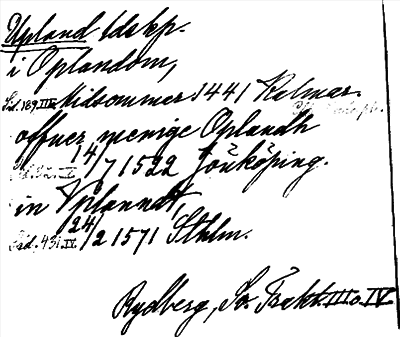 Upland ldskp.
i Oplandom,
Sid. 189. III. Midsommer 1441 Kalmar.
offuer menige Oplandh
14/7 1522 Jönköping.
in Vplanndt,
Sid. 431. IV. 24/2 1571 Sthlm.
Rydberg, Sv. Trakt. III o. IV